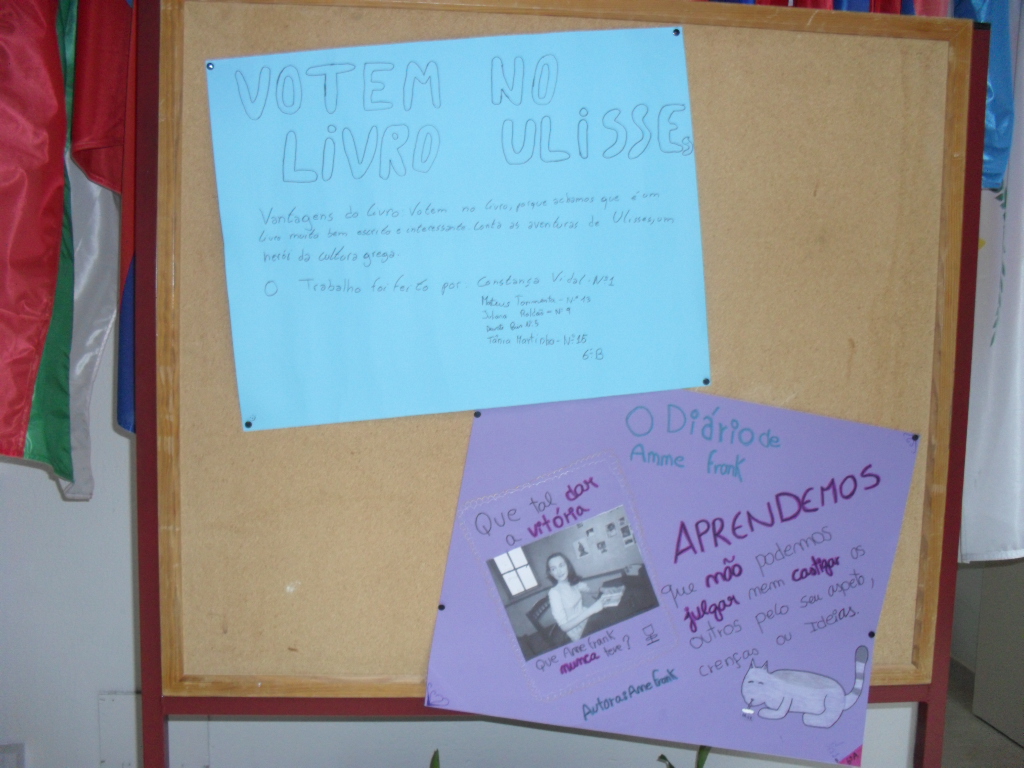 VOTEM NO
LIVRO ULISSES
Vantagens do livro Votem no livro, porque achamos que é um
livro muito bem escrito e interessante conta as aventuras de Ulisses, um
herói da cultura grega.
O Trabalho foi feito por: Constança Vidal - Nº1
Mateus - Nº 13
Juliana Roldão - Nº 9
Nº5
Tânia Martinho - Nº 15
6ºB
O Diário de
Anne Frank
Que tal dar
a vitória
Que Anne Frank
nunca teve?
Autora: Anne Frank
APRENDEMOS
que não podemos
julgar nem castigar os
outros pelo seu aspeto,
crenças ou ideias.